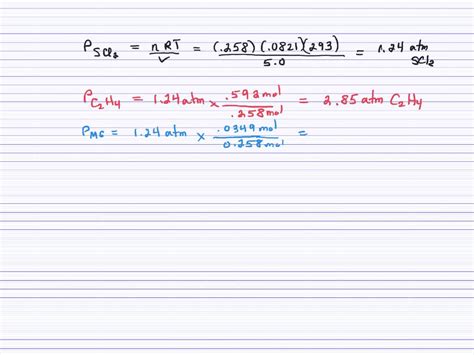 P_SCl₂ = nRT/V = (.258)(.0821)(293)/5.0 = 1.24 atm SCl₂
P_C₂H₄ = 1.24 atm × .592 mol/.258 mol = 2.85 atm C₂H₄
P_MG = 1.24 atm × .0349 mol/0.258 mol =